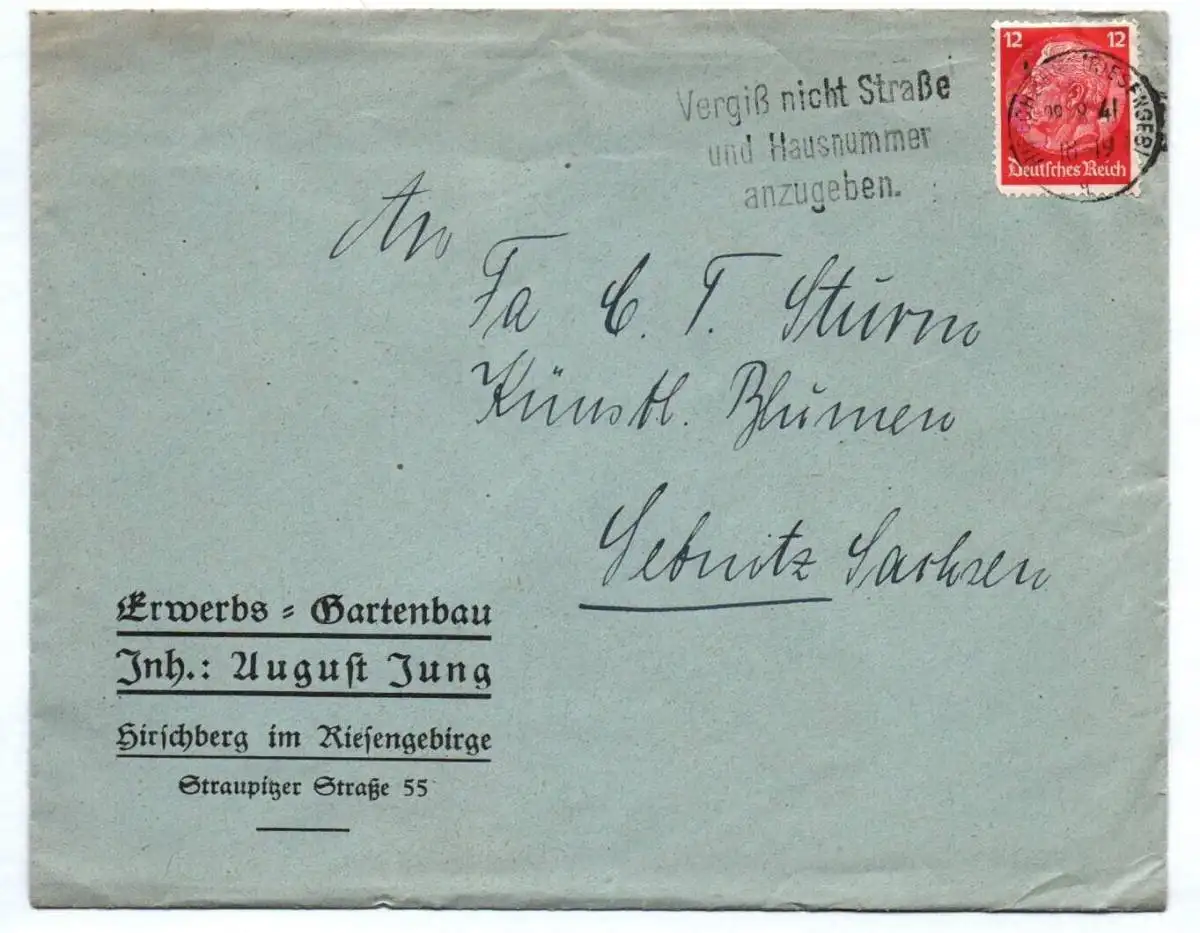 Vergiß nicht Straße
und Hausnummer
anzugeben.
12 12
Deutsches Reich
(RIESENGEB)
41
An
Fa C. T. Sturm
Künstl. Blumen
Sebnitz Sachsen
Erwerbs = Gartenbau
Inh.: August Jung
Hirschberg im Riesengebirge
Straupitzer Straße 55